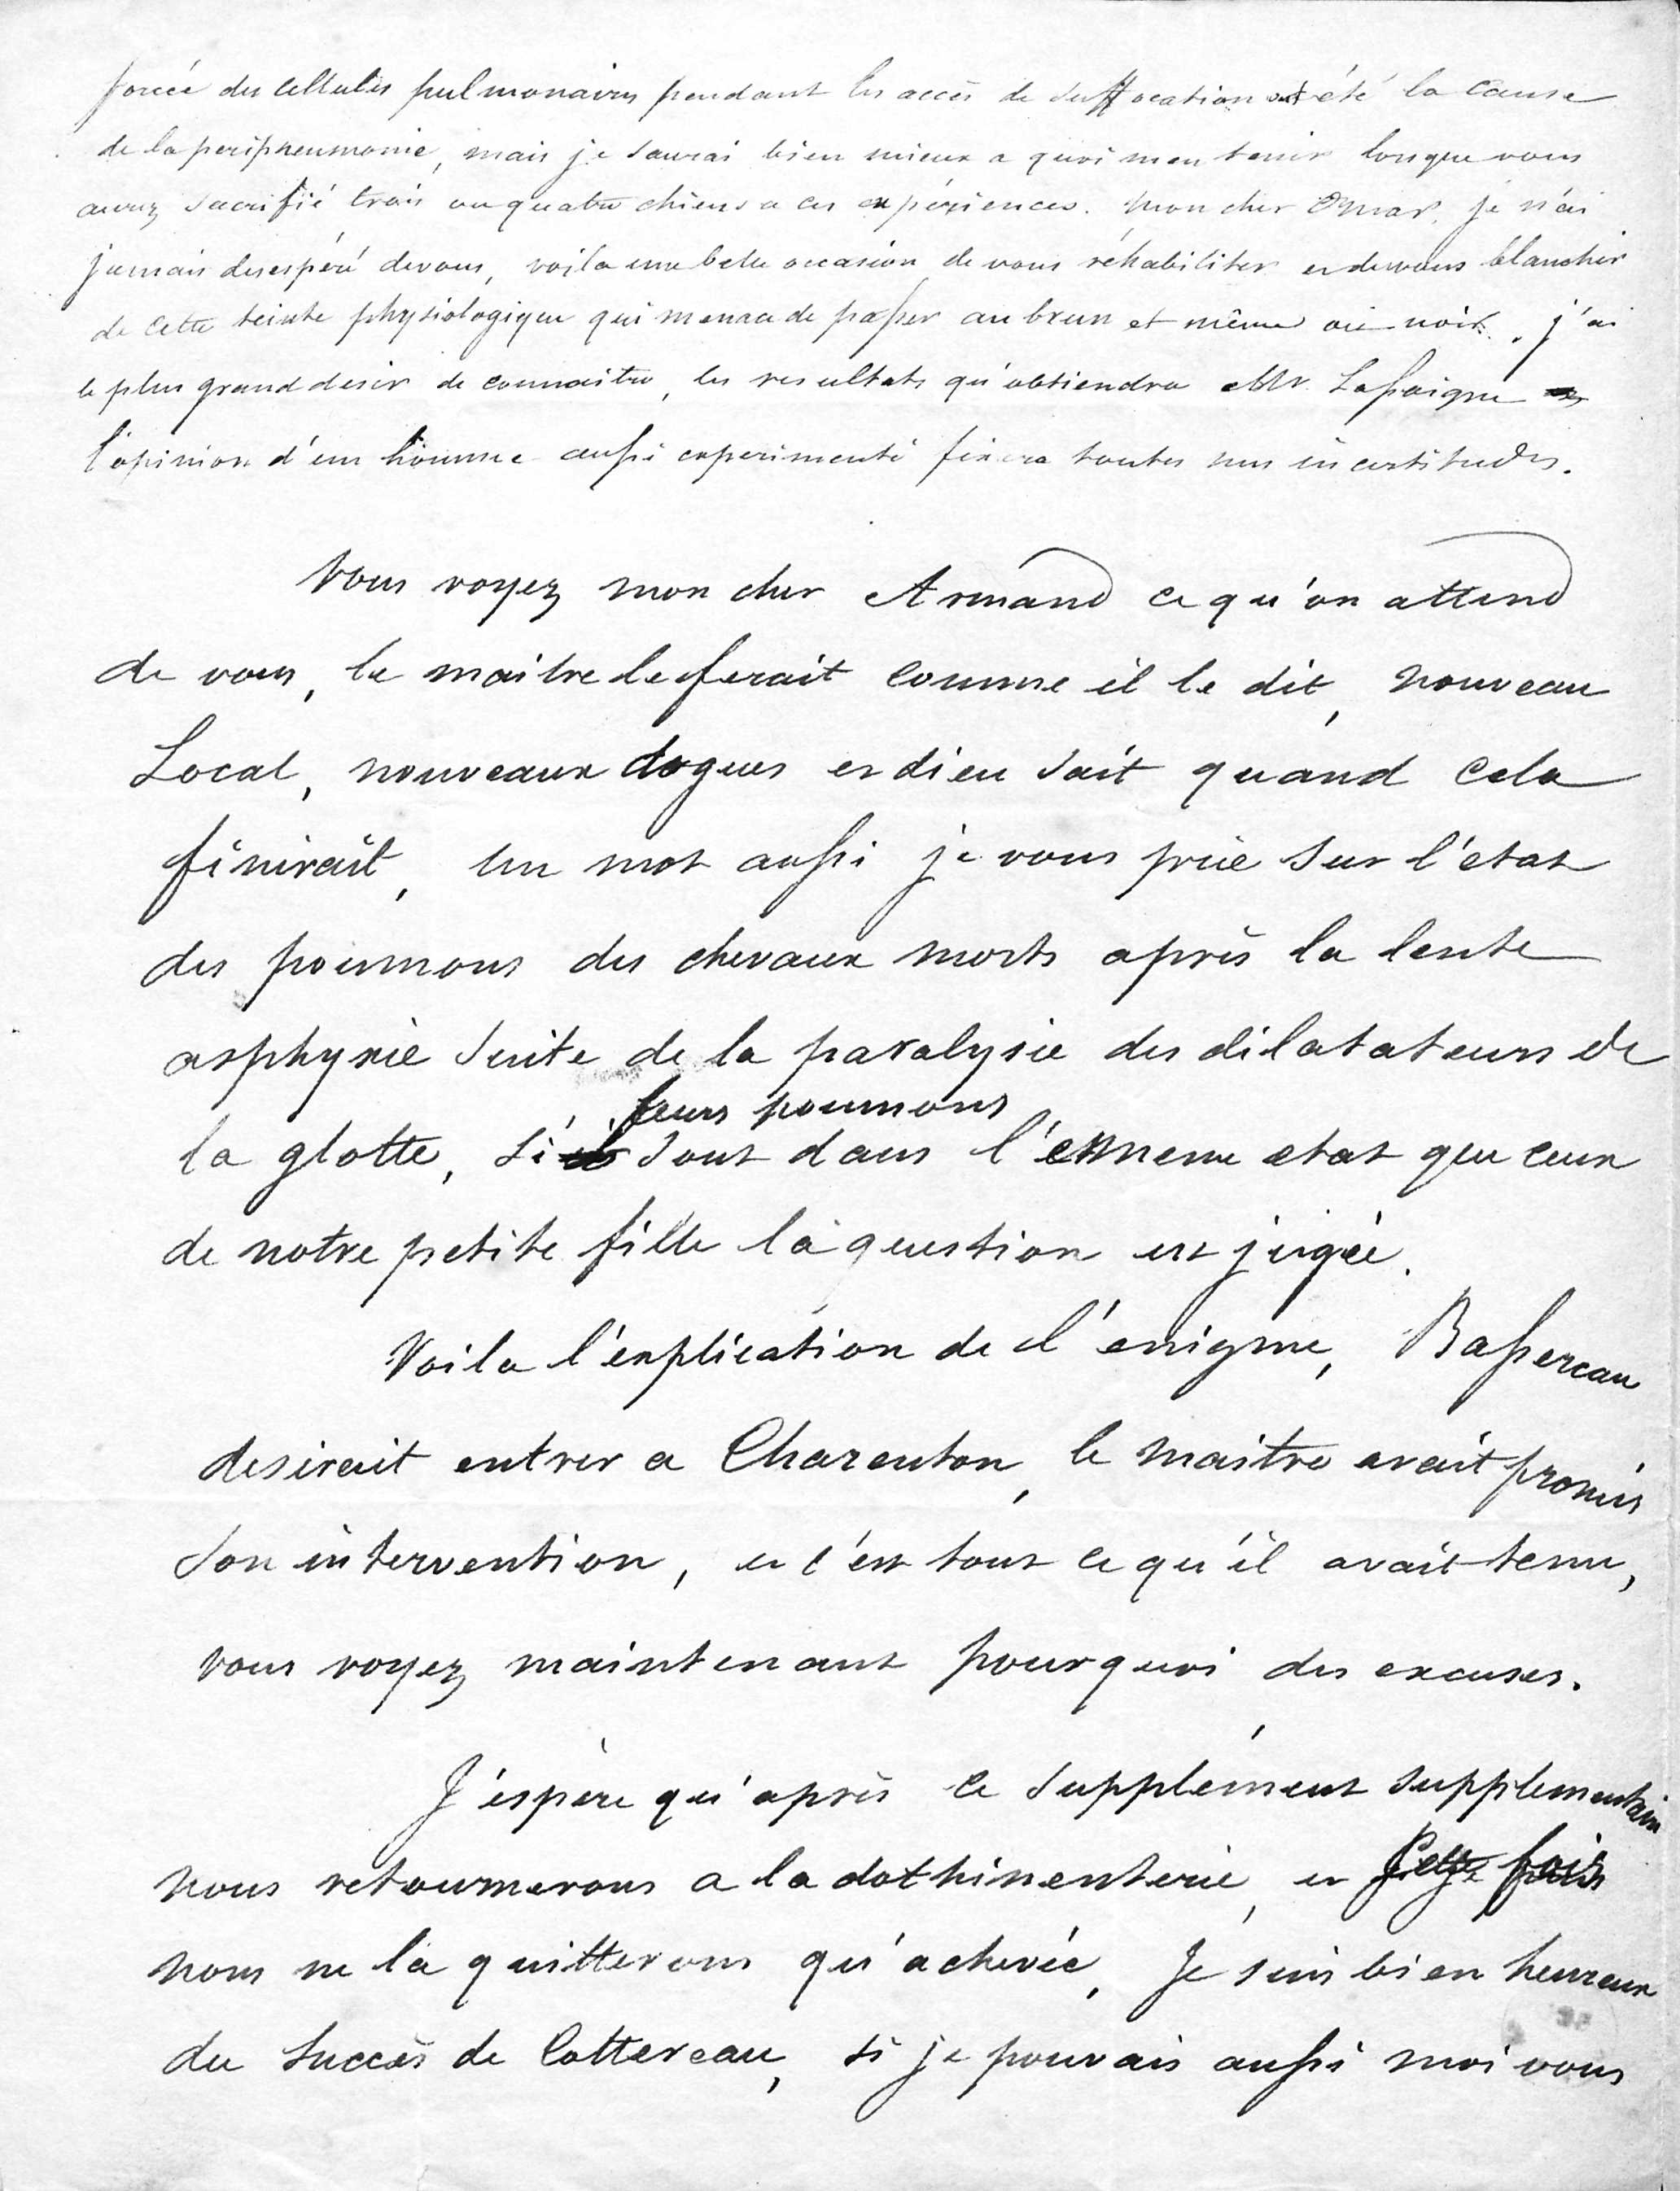 forcée des cellules pulmonaires pendant les accès de suffocation ont été la cause
de la peripneumonie, mais je saurai bien mieux a quoi men tenir lorsque vous
aurez sacrifié trois ou quatre chiens a ces expériences. Mon cher Omar, je n'ai
jamais desespéré de vous, voila une belle occasion de vous réhabiliter et de vous blanchir
de cette teinte physiologique qui menace de passer au brun et même au noir. j'ai
le plus grand desir de connaitre, les resultats qu'obtiendra Mr. Lassaigne
l'opinion d'un homme aussi experimenté fixera toutes nos incertitudes.
Vous voyez mon cher Armand ce qu'on attend
de vous, le maitre le ferait comme il le dit, nouveau
Local, nouveaux dogues et dieu sait quand cela
finirait, un mot aussi je vous prie sur l'etat
des poumons des chevaux morts après la lente
asphyxie suite de la paralysie des dilatateurs de
leurs poumons
la glotte, si sont dans l' meme etat que ceux
de notre petite fille la question est jugée.
Voila l'explication de l'enigme, Bassereau
desirait entrer a Charenton, le maitre avait promis
son intervention, et c'est tout ce qu'il avait tenu,
vous voyez maintenant pourquoi des excuses.
J'espère qu'après ce supplément supplementaire
nous retournerons a la dothinenterie, et cette fois
nous ne la quitterons qu'achevée, Je suis bien heureux
du succès de Cottereau, si je pouvais aussi moi vous